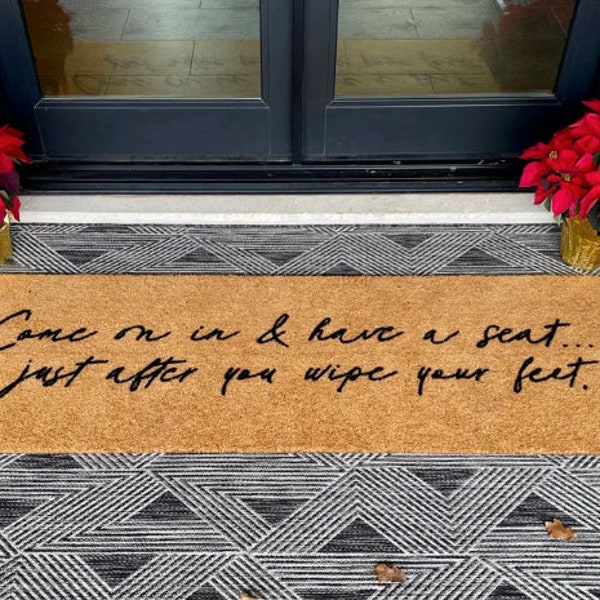 Come on in & have a seat...
just after you wipe your feet.